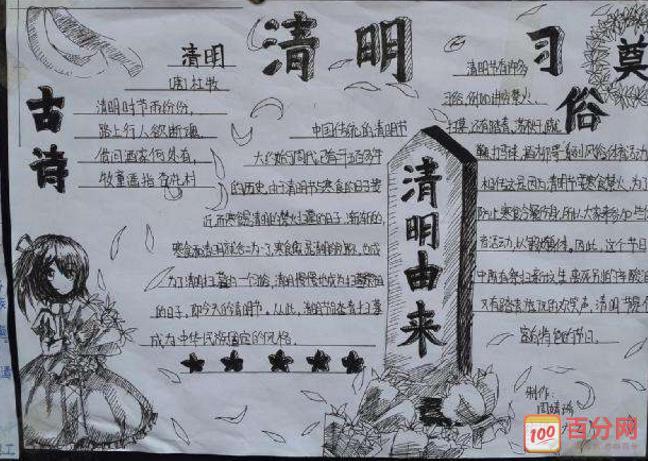 清明
古诗
清明
[唐]杜牧
清明时节雨纷纷，
路上行人欲断魂
借问酒家何处有，
牧童遥指杏花村
中国传统的清明节
大约始于周代，已有二千五百多年
的历史，由于清明节与寒食的日子接
近，而寒食是民间禁火扫墓的日子，渐渐的，
寒食和清明就合二为一了，寒食既是清明的别称，也成
为了清明
的日子，即今天的清明节。从此，清明节
成为中华民族固定的风俗。
清明由来
习俗
清明节有许多
习俗，例如讲究禁火、
扫墓，还有踏青、荡秋千、蹴
鞠、打马球、插柳等一系列风俗体育活动
相传这是因为清明节要寒食禁火，为了
防止寒食冷餐伤身，所以大家来参加一些体
育活动，以锻炼身体。因此，这个节日
中既有祭扫新坟生离死别的
又有踏青游玩的欢笑声，
富有特色的节日。
制作：
莫
100
百分网